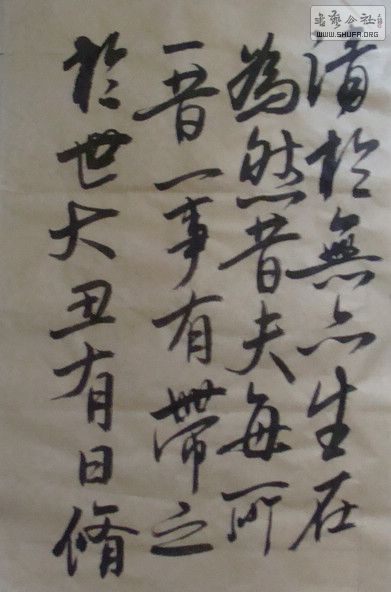 清於無亦生在
為然昔夫每所
一昔一事有帶之
於世大丑有日脩
书艺公社
WWW.SHUFA.ORG